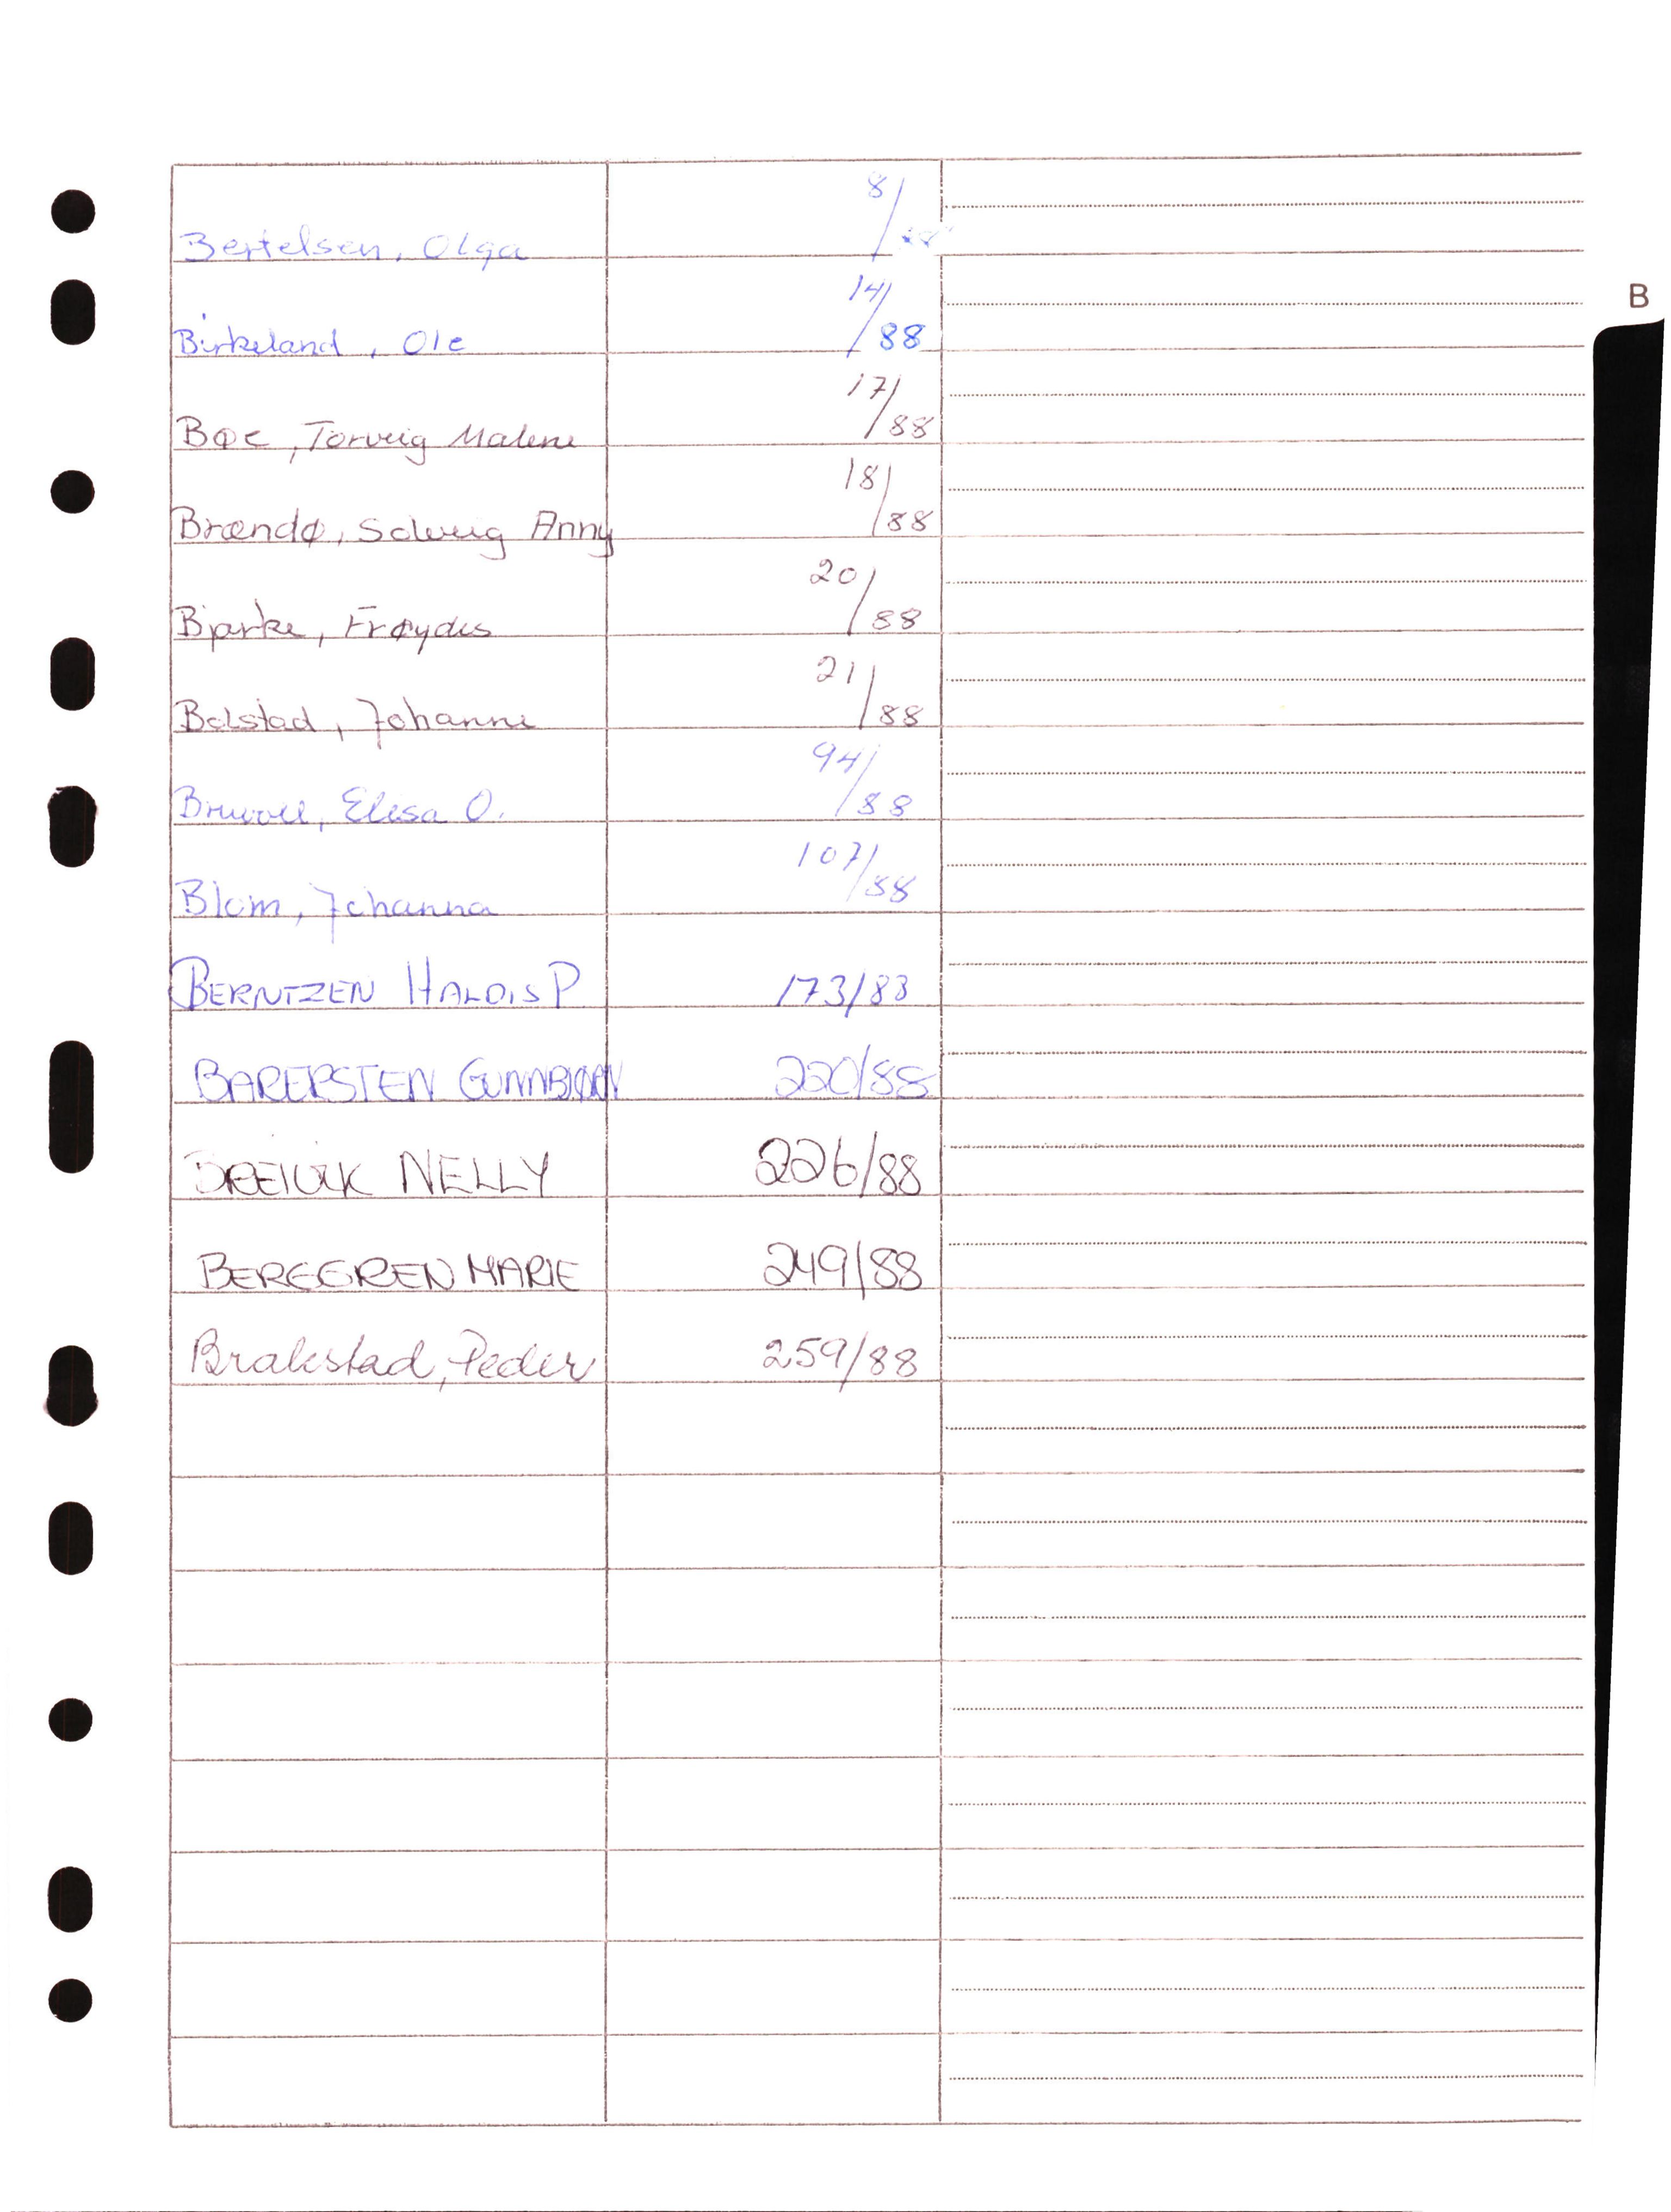 Bertelsen, Olga 8/88
B
Birkeland, Ole 14/88
Bøe, Torveig Malene 17/88
Brændø, Solveig Anny 18/88
Bjarke, Frøydis 20/88
Bolstad, Johanne 21/88
Bruvoll, Elisa O. 94/88
Blom, Johanna 107/88
BERNTZEN HALDIS P 173/88
BARERSTEN GUNNBJØRN 220/88
BREIVIK NELLY 226/88
BERGGREN MARIE 249/88
Brakstad, Peder 259/88